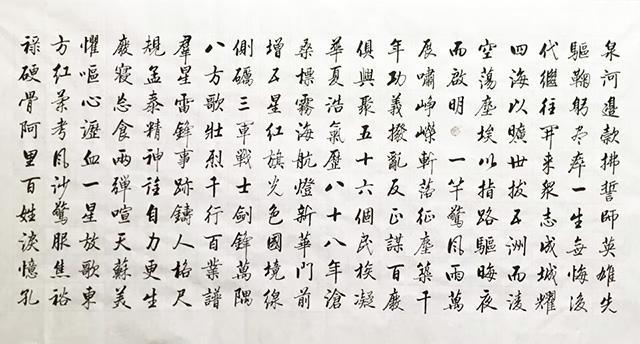 泉河邊款拂誓師英雄先
驅鞠躬尽瘁一生無悔後
代繼往開来衆志成城耀
四海以曠世拔五洲而淩
空蕩塵埃以指路驅晦夜
而啟明 一竿驚風雨萬
展嘯崢嶸斬荡征塵築千
年功義撥亂反正謀百廢
俱興聚五十六個民族凝
華夏浩氣歷八十八年滄
桑標霧海航燈新華門前
增五星紅旗光色國境線
側礪三軍戰士劍鋒萬隅
八方歌壮烈千行百業譜
羣星雷鋒事跡鑄人格尺
規孟泰精神詮自力更生
廢寝忘食兩彈喧天蘇美
懼嘔心瀝血一星放歌東
方红考風沙驚服焦裕
祿硬骨阿里百姓淡憶孔